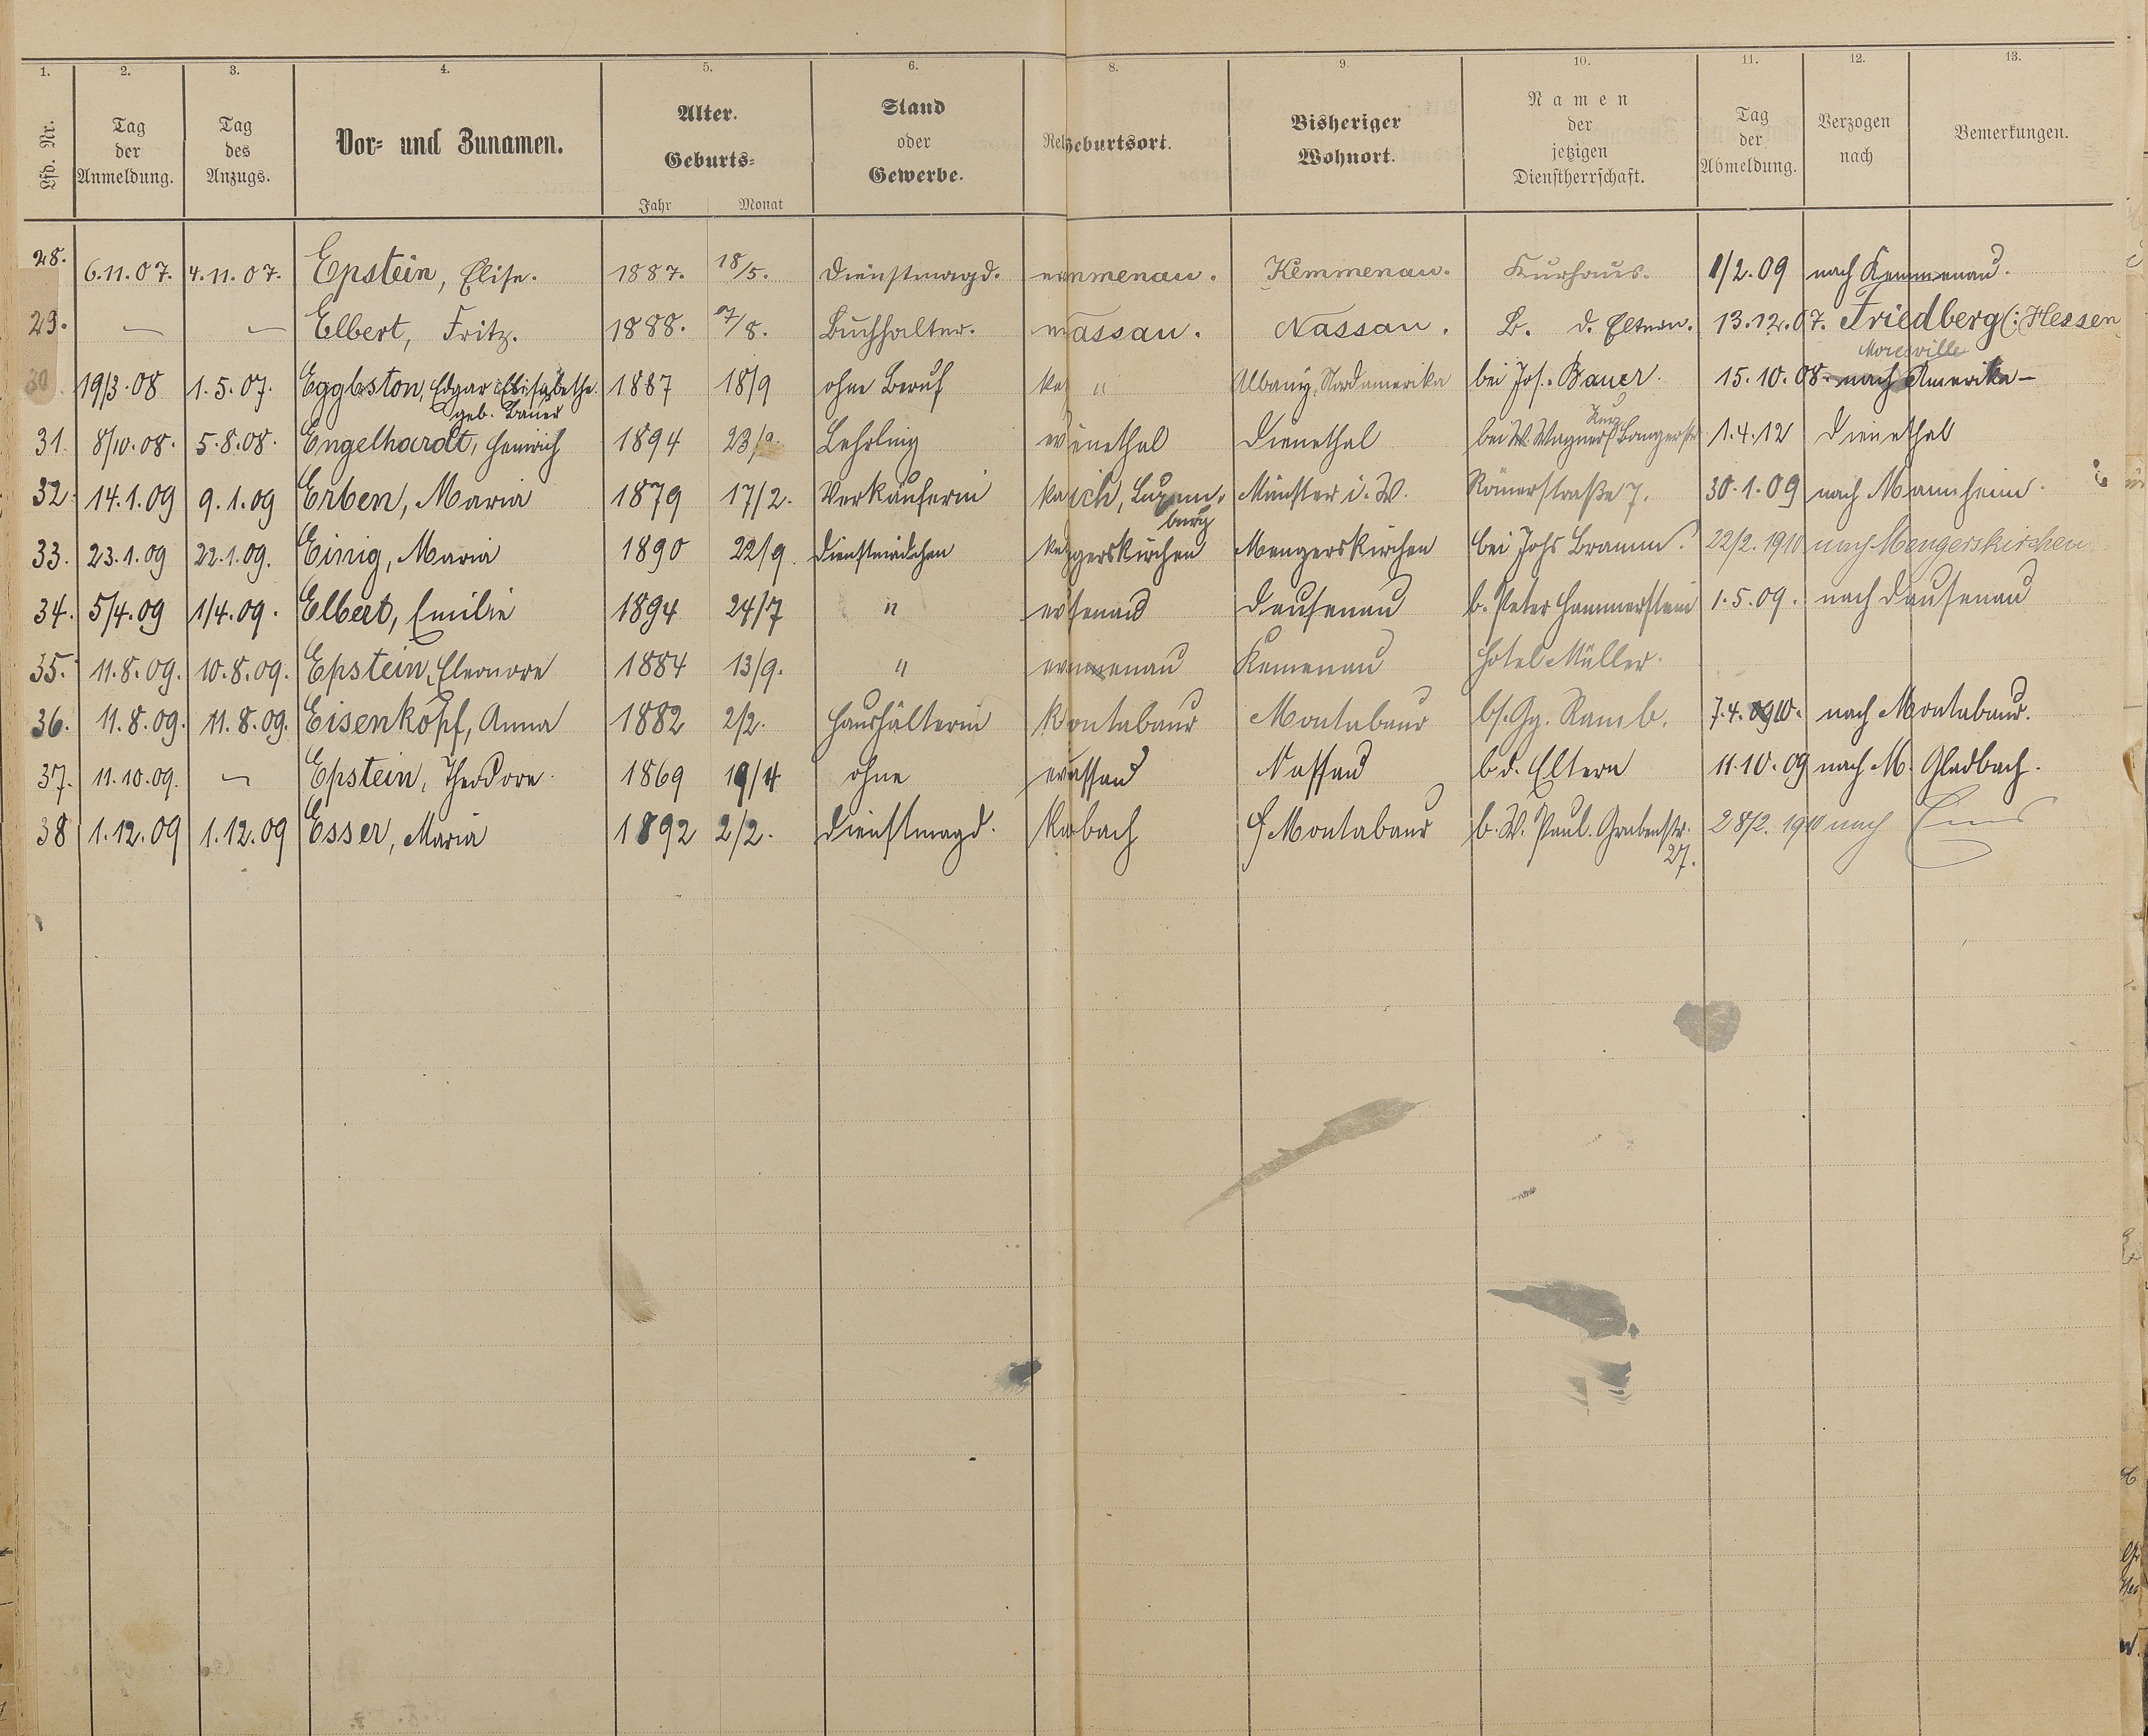 1. 2. 3. 4. 5. 6. 8. 9. 10. 11. 12. 13.
Lfd. Nr. Tag der Anmeldung. Tag des Anzugs. Vor- und Zunamen. Alter. Geburts- Jahr Monat Stand oder Gewerbe. Rel Geburtsort. Bisheriger Wohnort. Namen der jetzigen Dienstherrschaft. Tag der Abmeldung. Verzogen nach Bemerkungen.
28. 6.11.07. 4.11.07. Epstein, Elise. 1887. 18/5. Dienstmagd. ev mmenau. Kemmenau. Kurhaus. 1/2.09 nach Kemmenau.
29. — — Elbert, Fritz. 1888. /8. Buchhalter. ev assau. Nassau. B. d. Eltern. 13.12.07. Friedberg (: Hessen
30. 19/3.08 1.5.07. Eggleston, Edgar Elisabethe. geb. Bauer 1887 18/9 ohne Beruf ka " Albany, Nordamerika bei Jos. Bauer. 15.10.08. nach Amerika —
31. 8/10.08. 5.8.08. Engelhardt, Heinrich 1894 23/9. Lehrling ev ienethal Dienethal bei W. Wagner 1.4.12 Dienethal
32. 14.1.09 9.1.09 Erben, Maria 1879 17/2. Verkäuferin ka ich, Luxemburg Münster i. W. Römerstraße 7. 30.1.09 nach Mannheim.
33. 23.1.09 22.1.09. Einig, Maria 1890 22/9. Dienstmädchen ka gerskirchen Mengerskirchen bei Johs 22/2.1910 nach Mengerskirchen
34. 5/4.09 1/4.09. Elbert, Emilie 1894 24/7 " ev senau Dausenau b. Peter Hammerstein 1.5.09. nach Dausenau
35. 11.8.09. 10.8.09. Epstein, Eleonore 1884 13/9. " ev menau Kemenau Hotel Müller.
36. 11.8.09. 11.8.09. Eisenkopf, Anna 1882 2/2. Haushälterin k ontabaur Montabaur Gg. Ramb. 7.4.10. nach Montabaur.
37. 11.10.09. — Epstein, Theodore. 1869 19/4 ohne ev assau Nassau b d. Eltern 11.10.09 nach M. Gladbach.
38 1.12.09 1.12.09 Esser, Maria 1892 2/2. Dienstmagd. ka bach Montabaur b. W. Paul. Grabenstr. 27. 28/2. 1910 nach Ems